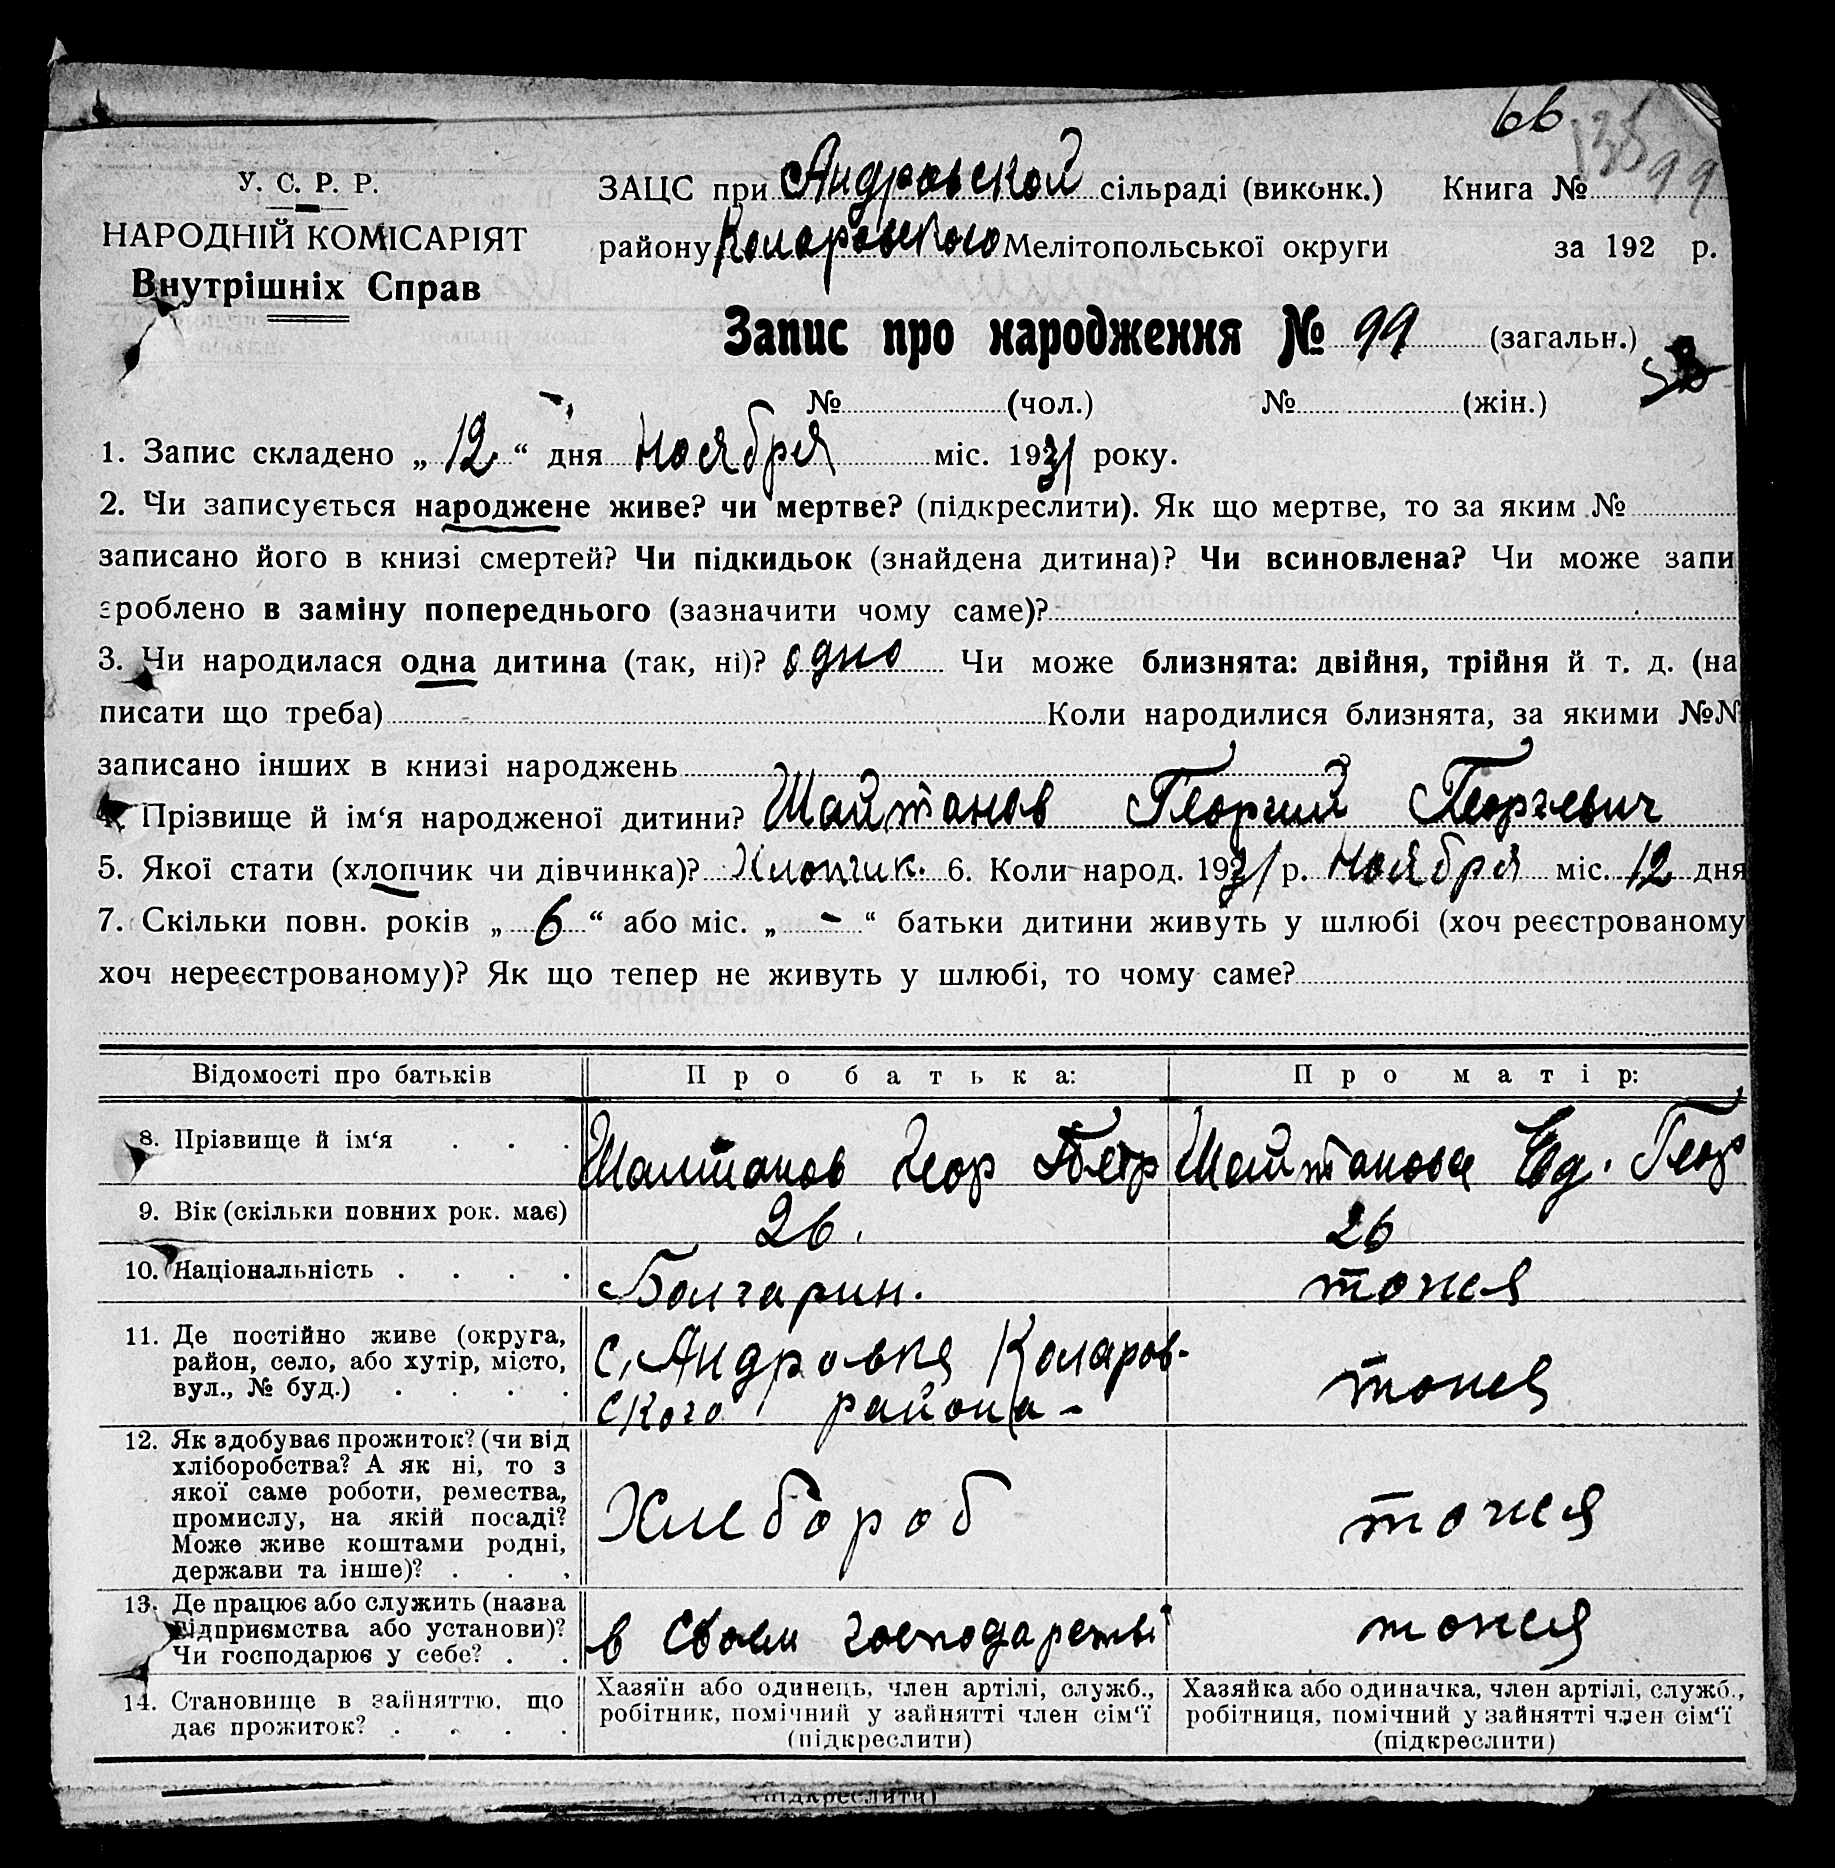 66
99
У. С. Р. Р.
НАРОДНІЙ КОМІСАРІЯТ
Внутрішніх Справ
ЗАЦС при Андровской сільраді (виконк.) Книга №
району Коларовского Мелітопольської округи за 192 р.
Запис про народження № 99 (загальн.)
№ (чол.) № (жін.)
1. Запис складено „ 12 “ дня ноября міс. 1931 року.
2. Чи записується народжене живе? чи мертве? (підкреслити). Як що мертве, то за яким №
записано його в книзі смертей? Чи підкидьок (знайдена дитина)? Чи всиновлена? Чи може запи
зроблено в заміну попереднього (зазначити чому саме)?
3. Чи народилася одна дитина (так, ні)? одно Чи може близнята: двійня, трійня й т. д. (на
писати що треба) Коли народилися близнята, за якими №№
записано інших в книзі народжень
4. Прізвище й ім‘я народженої дитини? Шайтанов Георгий Георгевич
5. Якої стати (хлопчик чи дівчинка)? Хлопчик. 6. Коли народ. 1931 р. ноября міс. 12 дня
7. Скільки повн. років „ 6 “ або міс. „ - “ батьки дитини живуть у шлюбі (хоч реєстрованому
хоч нереєстрованому)? Як що тепер не живуть у шлюбі, то чому саме?
Відомості про батьків Про батька: Про матір:
8. Прізвище й ім‘я . . . Шайтанов Геор Петр Шайтанова Ед. Геор
9. Вік (скільки повних рок. має) 26. 26
10. Національність . . . . Болгарин. тожея
11. Де постійно живе (округа,
район, село, або хутір, місто,
вул., № буд.) . . . .
с. Андровка Коларов-
ского района -
тожея
12. Як здобуває прожиток? (чи від
хліборобства? А як ні, то з
якої саме роботи, ремества,
промислу, на якій посаді?
Може живе коштами родні,
держави та інше)? . . .
Хлебороб
тожея
13. Де працює або служить (назва
підприємства або установи)?
Чи господарює у себе? . .
в своем господарстві
тожея
14. Становище в зайняттю, що
дає прожиток? . . . .
Хазяїн або одинець, член артілі, служб.,
робітник, помічний у зайнятті член сім‘ї
(підкреслити)
Хазяйка або одиначка, член артілі, служб.,
робітниця, помічний у зайнятті член сім‘ї
(підкреслити)
(підкреслити)